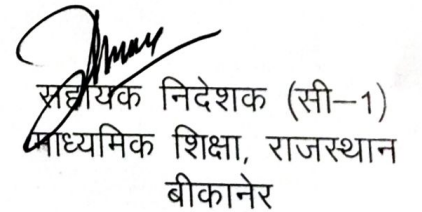 सहायक निदेशक (सी–1)
माध्यमिक शिक्षा, राजस्थान
बीकानेर